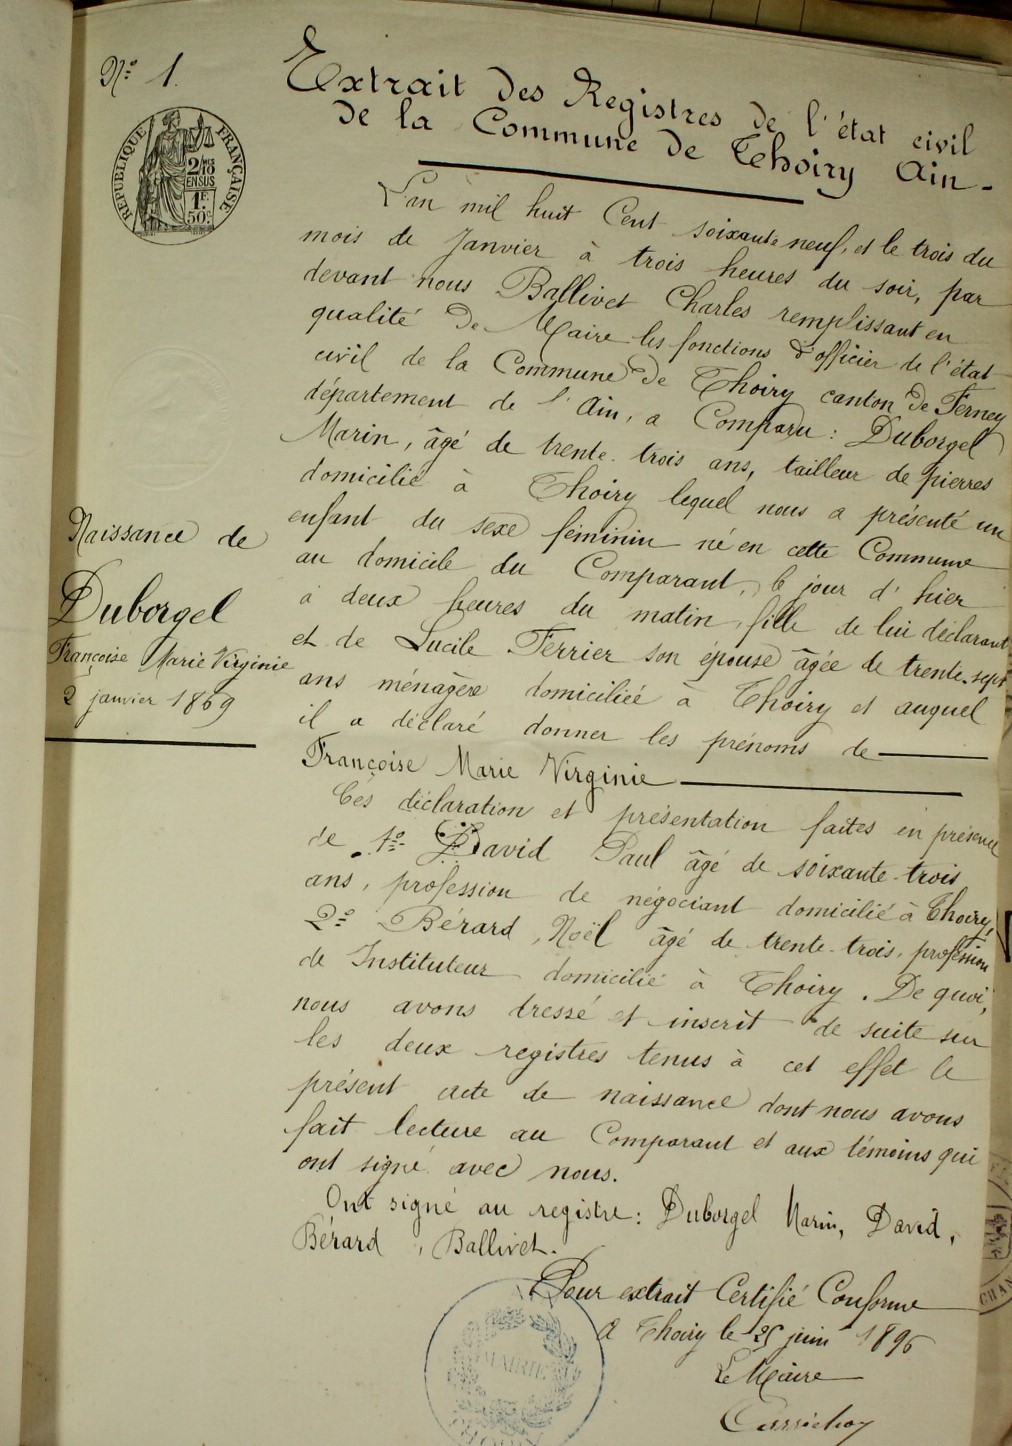 N° 1.
RÉPUBLIQUE FRANÇAISE
2/10
EN SUS
1F.
50c.
Extrait des Registres de l'état civil
de la Commune de Thoiry Ain-
L'an mil huit Cent soixante neuf, et le trois du
mois de Janvier à trois heures du soir, par
devant nous Ballivet Charles remplissant en
qualité de Maire les fonctions d'officier de l'état
civil de la Commune de Thoiry canton de Ferney
département de l'Ain, a Comparu : Duborgel
Marin, âgé de trente-trois ans, tailleur de pierres
domicilié à Thoiry lequel nous a présenté un
enfant du sexe féminin né en cette Commune
au domicile du Comparant, le jour d'hier
à deux heures du matin, fille de lui déclarant
et de Lucile Ferrier son épouse âgée de trente-sept
ans ménagère domiciliée à Thoiry et auquel
il a déclaré donner les prénoms de
Françoise Marie Virginie
Naissance de
Duborgel
Françoise Marie Virginie
2 janvier 1869
Cés déclaration et présentation faites en présence
de 1° David Paul âgé de soixante-trois
ans, profession de négociant domicilié à Thoiry,
2° Bérard, Noël âgé de trente-trois, profession
de Instituteur domicilié à Thoiry. De quoi,
nous avons dressé et inscrit de suite sur
les deux registres tenus à cet effet le
présent acte de naissance dont nous avons
fait lecture au Comparant et aux témoins qui
ont signé avec nous.
Ont signé au registre : Duborgel Marin, David,
Bérard, Ballivet.
Pour extrait Certifié Conforme
A Thoiry le 25 juin 1896
Le Maire
MAIRIE
THOIRY